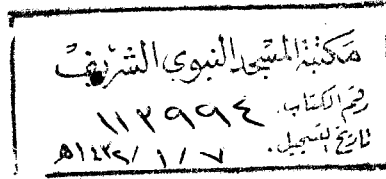 مكتبة المسجد النبوي الشريف
رقم الكتاب: ١١٣٩٩٤
تاريخ التسجيل: ١٤٣٢/١/٧هـ